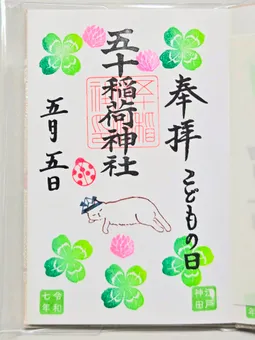 奉拝
こどもの日
五十稲荷神社
五月五日
江戸
神田
令和
七年